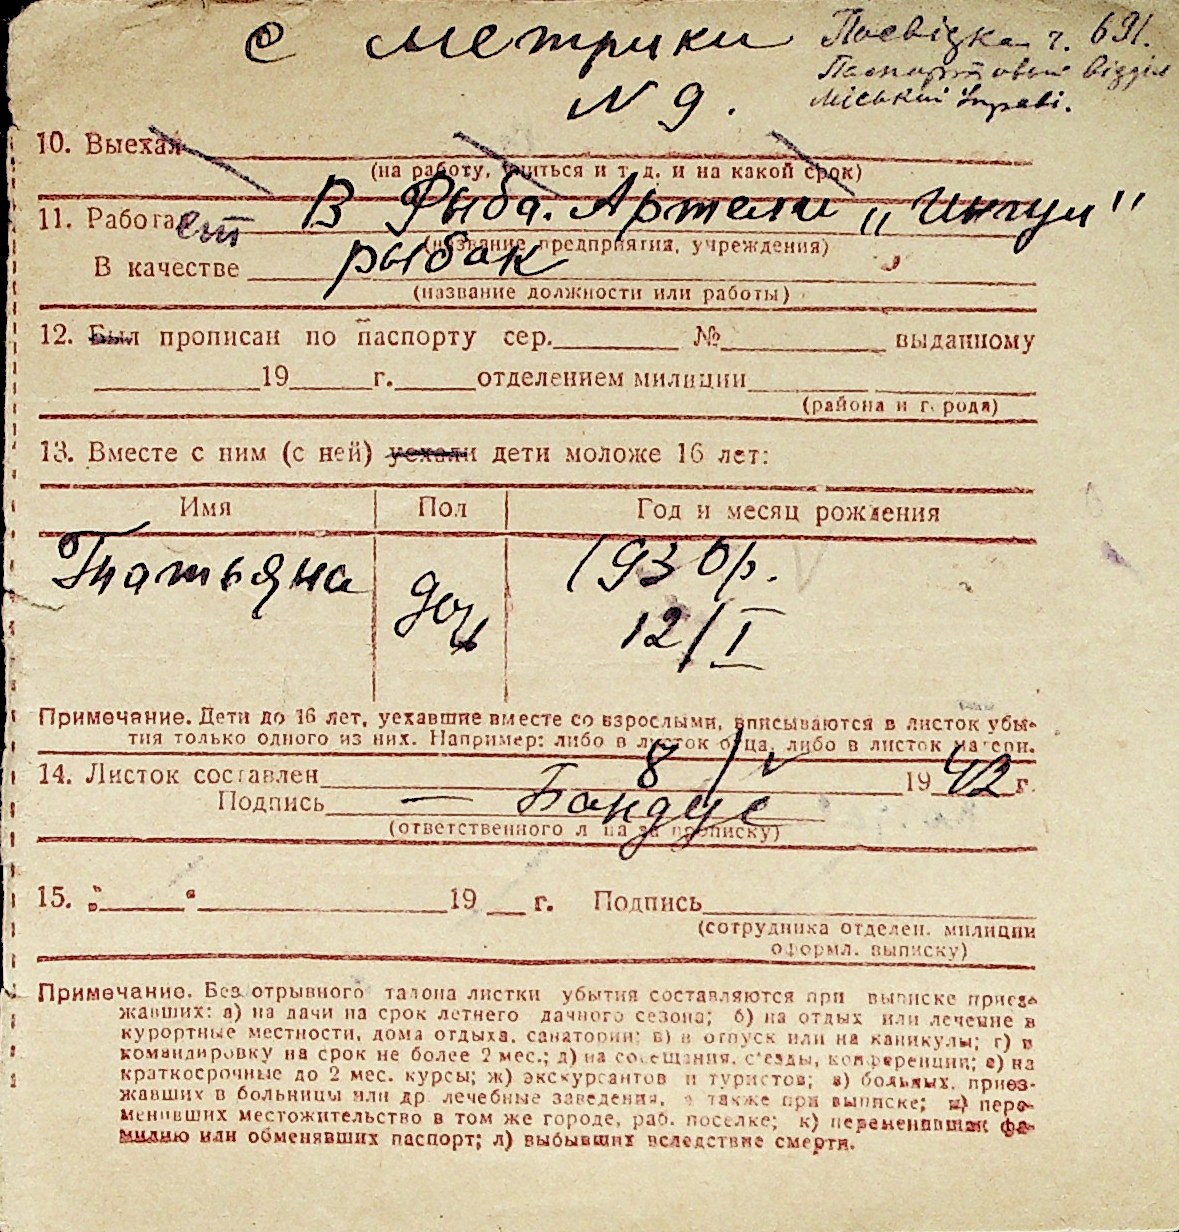 с метрики
N 9.
Посвідка ч. 691.
Паспортовый відділ
міській Управі.
10. Выехал
(на работу, учиться и т. д. и на какой срок)
11. Работает В Рыба. Артели „Ингул"
(название предприятия, учреждения)
В качестве рыбак
(название должности или работы)
12. Был прописан по паспорту сер. № выданному
19 г. отделением милиции
(района и города)
13. Вместе с ним (с ней) уехали дети моложе 16 лет:
Имя Пол Год и месяц рождения
Татьяна дочь 1930 р.
12/I
Примечание. Дети до 16 лет, уехавшие вместе со взрослыми, вписываются в листок убы-
тия только одного из них. Например: либо в листок отца, либо в листок матери.
14. Листок составлен 8/V 1942 г.
Подпись — Бандус
(ответственного лица за прописку)
15. „ “ 19 г. Подпись
(сотрудника отделен. милиции
оформл. выписку)
Примечание. Без отрывного талона листки убытия составляются при выписке приез-
жавших: а) на дачи на срок летнего дачного сезона; б) на отдых или лечение в
курортные местности, дома отдыха, санатории; в) в отпуск или на каникулы; г) в
командировку на срок не более 2 мес.; д) на совещания, с'езды, конференции; е) на
краткосрочные до 2 мес. курсы; ж) экскурсантов и туристов; з) больных, приез-
жавших в больницы или др лечебные заведения, а также при выписке; и) пере-
менивших местожительство в том же городе, раб. поселке; к) переменивших фа-
милию или обменявших паспорт; л) выбывших вследствие смерти.